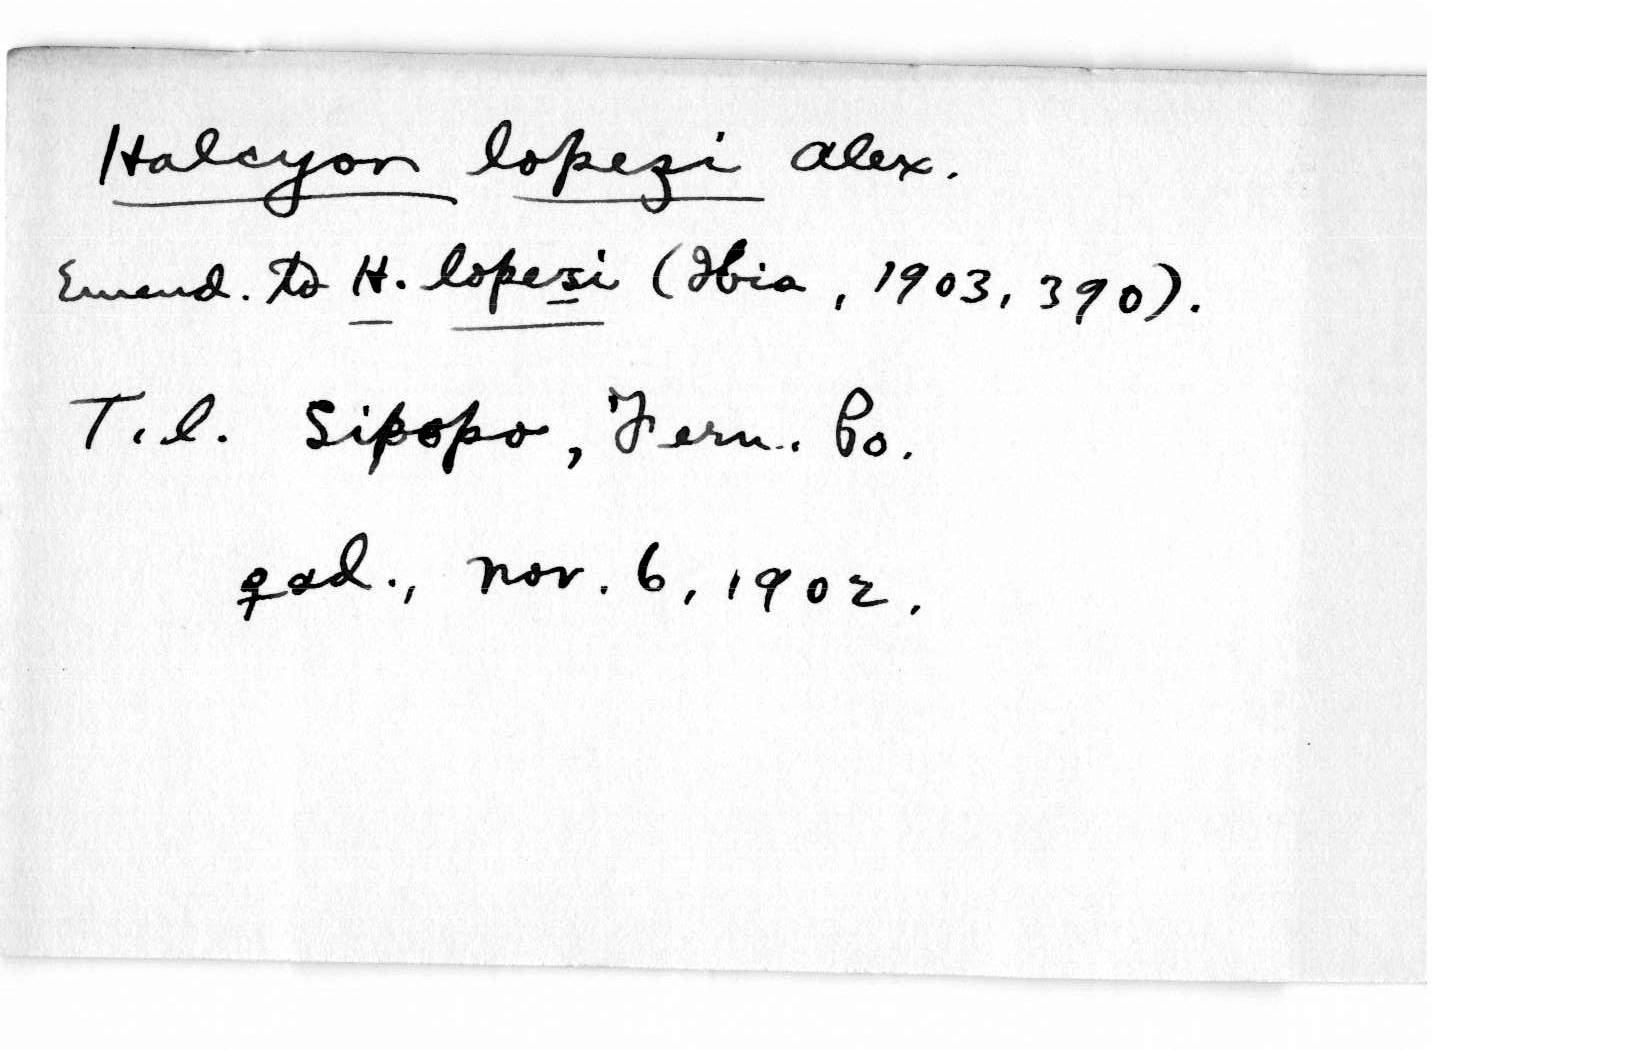 Halcyon lopezi Alex.
Emend. to H. lopesi (Ibis, 1903, 390).
T.l. Sipopo, Fern. Po.
♀ ad., Nov. 6, 1902.